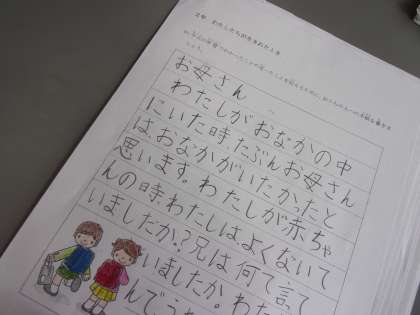 ２年 わたしたちが生まれたとき
お母さん
わたしがおなかの中
にいた時、たぶんお母さん
は、おなかがいたかったと
思います。わたしが赤ちゃ
んの時わたしは、よくないて
いましたか?兄は何て言て
いましたか。わた
んでうれ